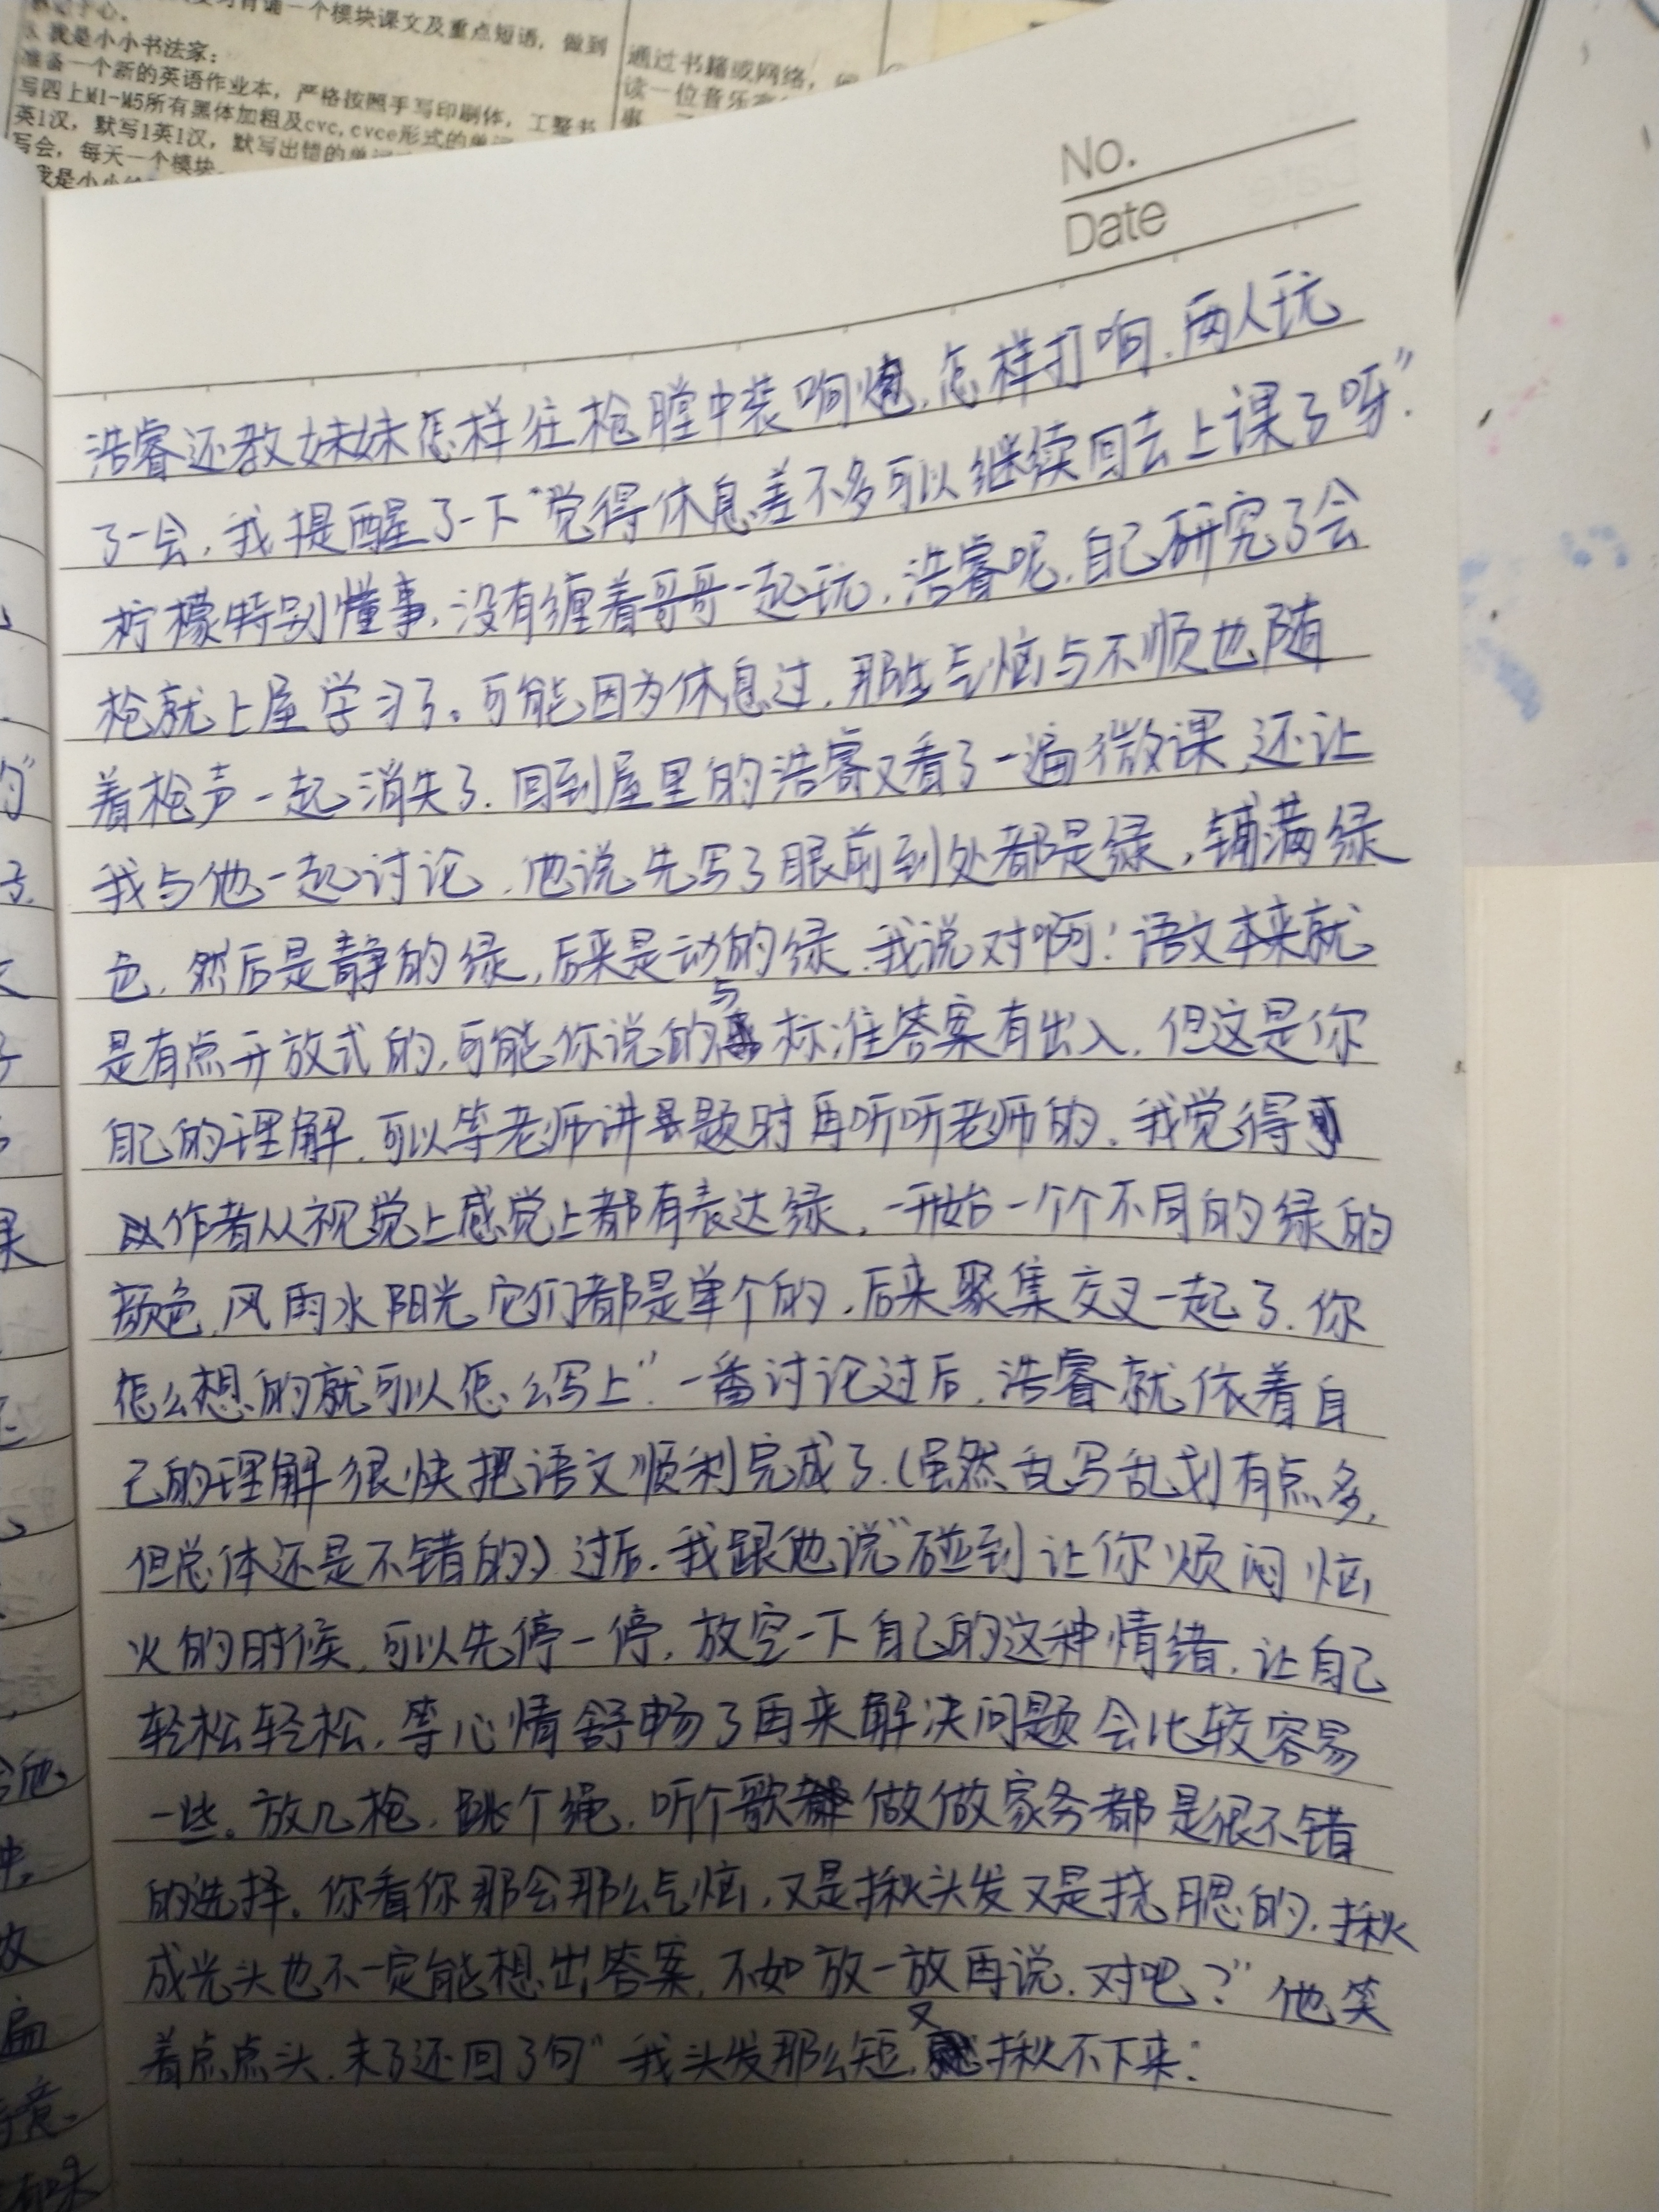 复习背诵一个模块课文及重点短语，做到
我是小小书法家：
准备一个新的英语作业本，严格按照手写印刷体，工整书
写四上M1-M5所有黑体加粗及cvc,cvce形式的单词
英1汉，默写1英1汉，默写出错的单词
写会，每天一个模块。
我是小小
通过书籍或网络，
读一位音乐
事
No.
Date
浩睿还教妹妹怎样往枪膛中装响炮，怎样打响．两人玩
了一会，我提醒了一下“觉得休息差不多可以继续回去上课了呀”．
柠檬特别懂事，没有缠着哥哥一起玩，浩睿呢，自己研究了会
枪就上屋学习了。可能因为休息过，那些气恼与不顺也随
着枪声一起消失了．回到屋里的浩睿又看了一遍微课，还让
我与他一起讨论，他说先写了眼前到处都是绿，铺满绿
色，然后是静的绿，后来是动的绿．我说对啊！语文本来就
是有点开放式的，可能你说的与标准答案有出入，但这是你
自己的理解，可以等老师讲题时再听听老师的．我觉得可
以作者从视觉上感觉上都有表达绿，一开始一个个不同的绿的
颜色，风雨水阳光它们都是单个的，后来聚集交叉一起了．你
怎么想的就可以怎么写上”．一番讨论过后，浩睿就依着自
己的理解很快把语文顺利完成了．（虽然乱写乱划有点多，
但总体还是不错的）过后．我跟他说“碰到让你烦闷恼
火的时候，可以先停一停，放空一下自己的这种情绪，让自己
轻松轻松，等心情舒畅了再来解决问题会比较容易
一些。放几枪，跳个绳，听个歌做做家务都是很不错
的选择。你看你那会那么气恼，又是揪头发又是挠腮的，揪
成光头也不一定能想出答案，不如放一放再说．对吧？”他笑
着点点头．末了还回了句“我头发那么短，又揪不下来．